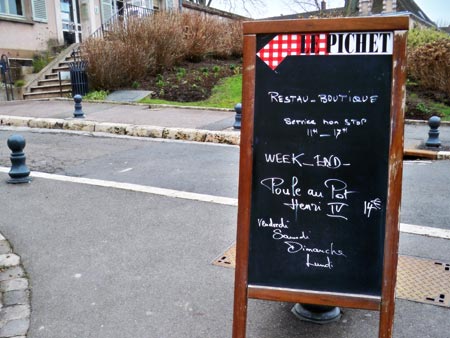 LE PICHET
RESTAU_BOUTIQUE
Service non STOP
11H _ 17H
WEEK_END_
Poule au Pot
Henri IV 14€
Vendredi
Samedi
Dimanche
Lundi